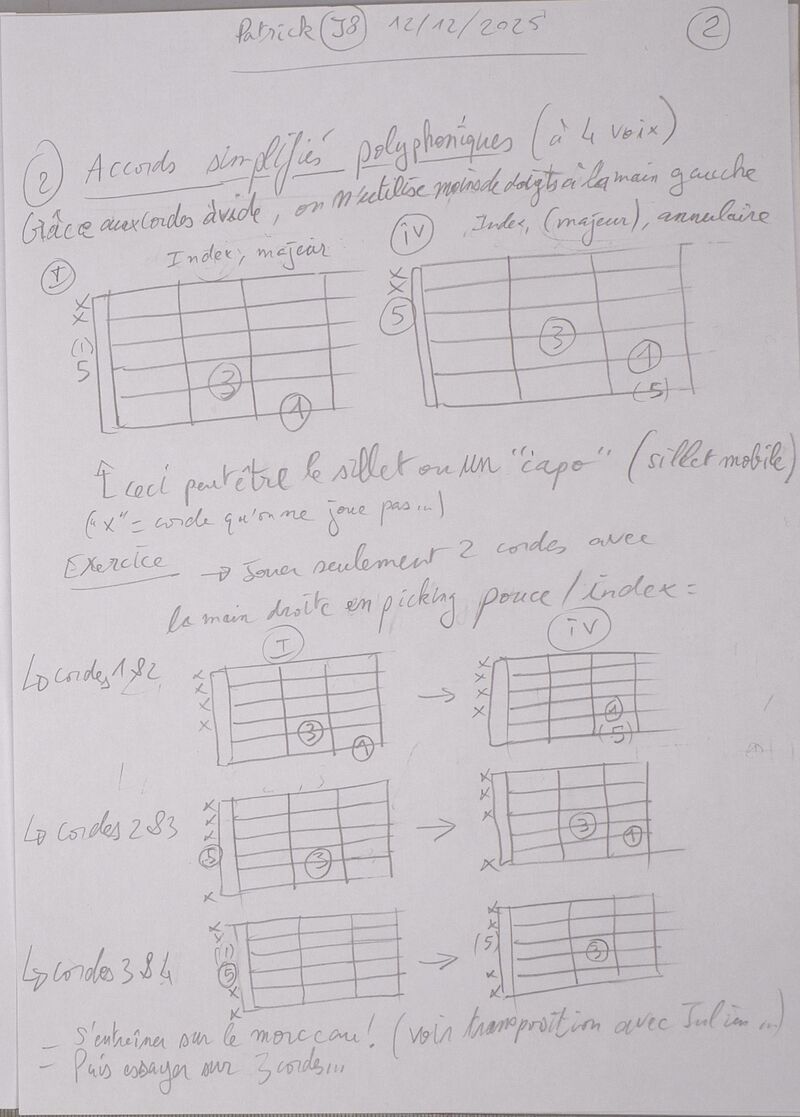 Patrick (J8) 12/12/2025 (2)
(2) Accords simplifiés polyphoniques (à 4 voix)
Grâce aux cordes à vide, on n'utilise moins de doigts à la main gauche
(I) Index, majeur (iv) Index, (majeur), annulaire
x x
x x
(1) (5)
5 (3)
(3) (1)
(1) (5)
↑ ceci peut être le sillet ou un "capo" (sillet mobile)
("x" = corde qu'on ne joue pas...)
Exercice → Jouer seulement 2 cordes avec
la main droite en picking pouce / index =
(I) (iv)
↳ cordes 1&2 x x x x (3) (1) → x x x x (1) (5)
↳ cordes 2&3 x x x (5) (3) x → x x x (3) (1) x
↳ cordes 3&4 x x (1) (5) x x → x x (5) (3) x x
- S'entraîner sur le morceau! (voir transposition avec Julien...)
- Puis essayer sur 3 cordes...